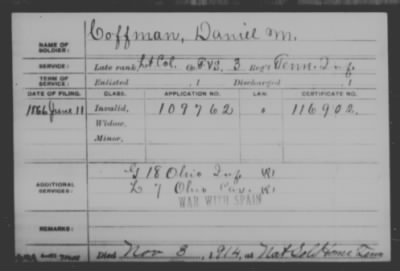 Coffman, Daniel M.
NAME OF SOLDIER:
SERVICE: Late rank, Lt Col. Co. F&S, 3 Reg't Tenn. Inf.
TERM OF SERVICE: Enlisted , 1 Discharged , 1
DATE OF FILING. CLASS. APPLICATION NO. LAW. CERTIFICATE NO.
1866 June 11 Invalid, 109762 116902
Widow,
Minor,
ADDITIONAL SERVICES:
G 18 Ohio Inf.
L 7 Ohio Cav.
WAR WITH SPAIN
REMARKS:
Died Nov 3, 1914, at Nat Sold Home Tenn